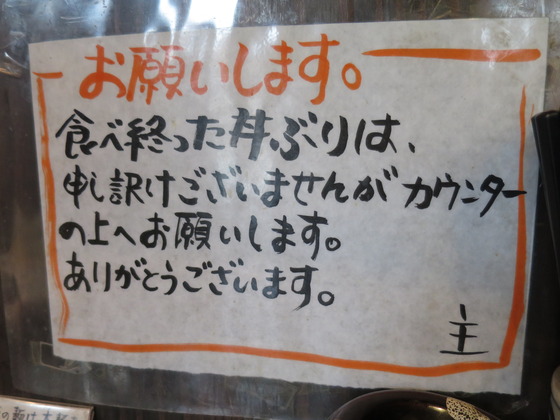 お願いします。
食べ終った丼ぶりは、
申し訳けございませんがカウンター
の上へお願いします。
ありがとうございます。
主